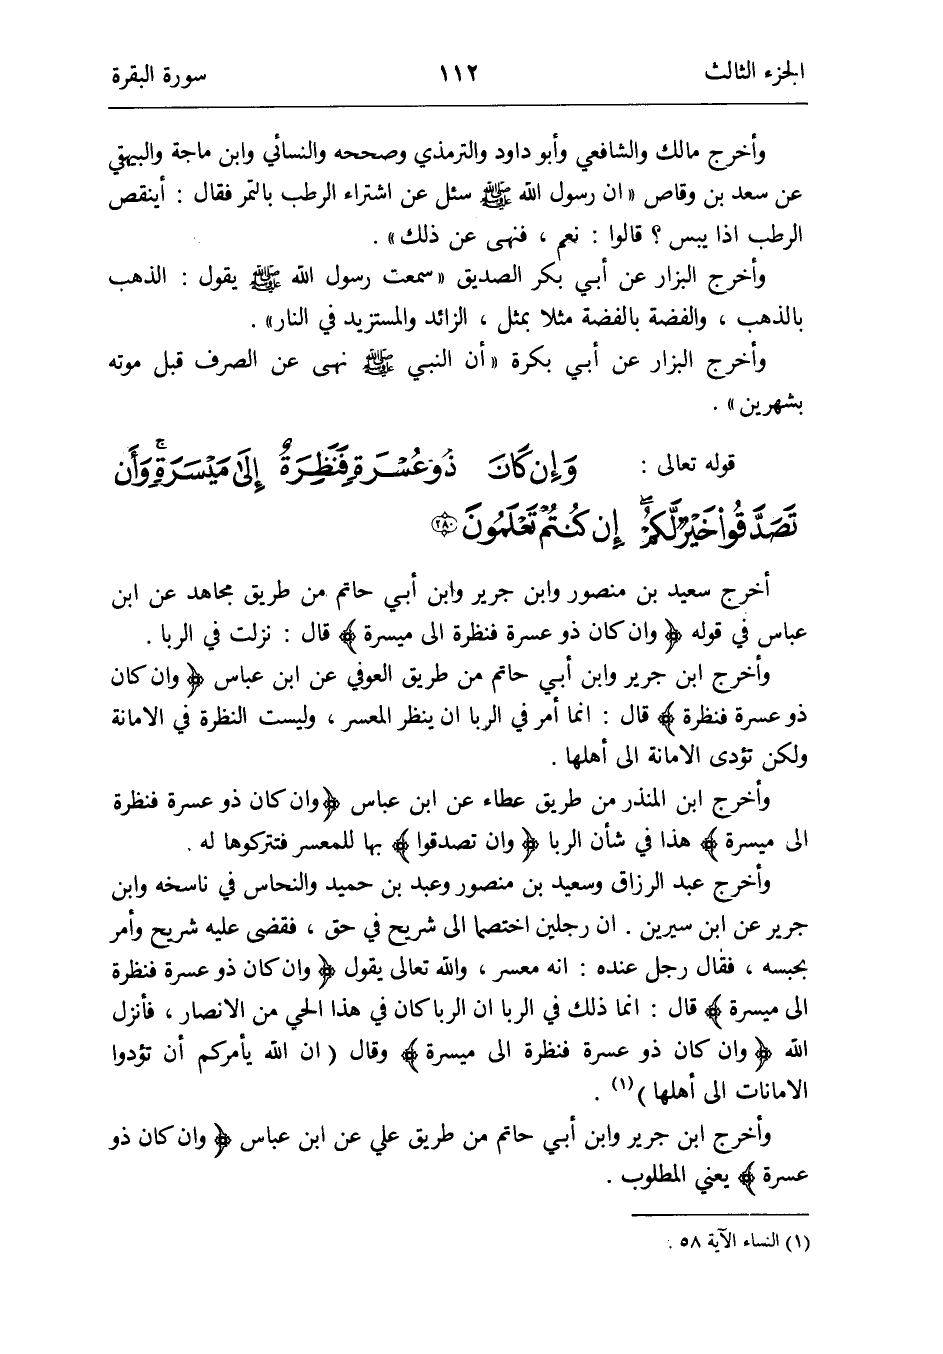 الجزء الثالث ١١٢ سورة البقرة
وأخرج مالك والشافعي وأبو داود والترمذي وصححه والنسائي وابن ماجة والبيهقي
عن سعد بن وقاص «ان رسول الله ﷺ سئل عن اشتراء الرطب بالتمر فقال : أينقص
الرطب اذا يبس ؟ قالوا : نعم ، فنهى عن ذلك» .
وأخرج البزار عن أبي بكر الصديق «سمعت رسول الله ﷺ يقول : الذهب
بالذهب ، والفضة بالفضة مثلا بمثل ، الزائد والمستزيد في النار» .
وأخرج البزار عن أبي بكرة «أن النبي ﷺ نهى عن الصرف قبل موته
بشهرين» .
قوله تعالى : وَإِن كَانَ ذُو عُسْرَةٍ فَنَظِرَةٌ إِلَىٰ مَيْسَرَةٍ ۚ وَأَن
تَصَدَّقُوا۟ خَيْرٌ لَّكُمْ ۖ إِن كُنتُمْ تَعْلَمُونَ ﴿٢٨٠﴾
أخرج سعيد بن منصور وابن جرير وابن أبي حاتم من طريق مجاهد عن ابن
عباس في قوله ﴿ وان كان ذو عسرة فنظرة الى ميسرة ﴾ قال : نزلت في الربا .
وأخرج ابن جرير وابن أبي حاتم من طريق العوفي عن ابن عباس ﴿ وان كان
ذو عسرة فنظرة ﴾ قال : انما أمر في الربا ان ينظر المعسر ، وليست النظرة في الامانة
ولكن تؤدى الامانة الى أهلها .
وأخرج ابن المنذر من طريق عطاء عن ابن عباس ﴿وان كان ذو عسرة فنظرة
الى ميسرة ﴾ هذا في شأن الربا ﴿ وان تصدقوا ﴾ بها للمعسر فتتركوها له .
وأخرج عبد الرزاق وسعيد بن منصور وعبد بن حميد والنحاس في ناسخه وابن
جرير عن ابن سيرين . ان رجلين اختصما الى شريح في حق ، فقضى عليه شريح وأمر
بحبسه ، فقال رجل عنده : انه معسر ، والله تعالى يقول ﴿ وان كان ذو عسرة فنظرة
الى ميسرة ﴾ قال : انما ذلك في الربا ان الربا كان في هذا الحي من الانصار ، فأنزل
الله ﴿ وان كان ذو عسرة فنظرة الى ميسرة ﴾ وقال ( ان الله يأمركم أن تؤدوا
الامانات الى أهلها )(١) .
وأخرج ابن جرير وابن أبي حاتم من طريق علي عن ابن عباس ﴿ وان كان ذو
عسرة ﴾ يعني المطلوب .
(١) النساء الآية ٥٨ .